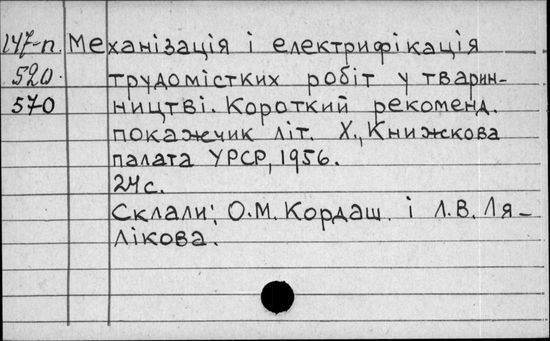 147-п. Механізація і електрифікація
520. трудомістких робіт у тварин-
570 ництві. Короткий рекоменд.
покажчик літ. Х., Книжкова
палата УРСР, 1956.
24с.
Склали: О.М. Кордаш і Л.В. Ля-
лікова.